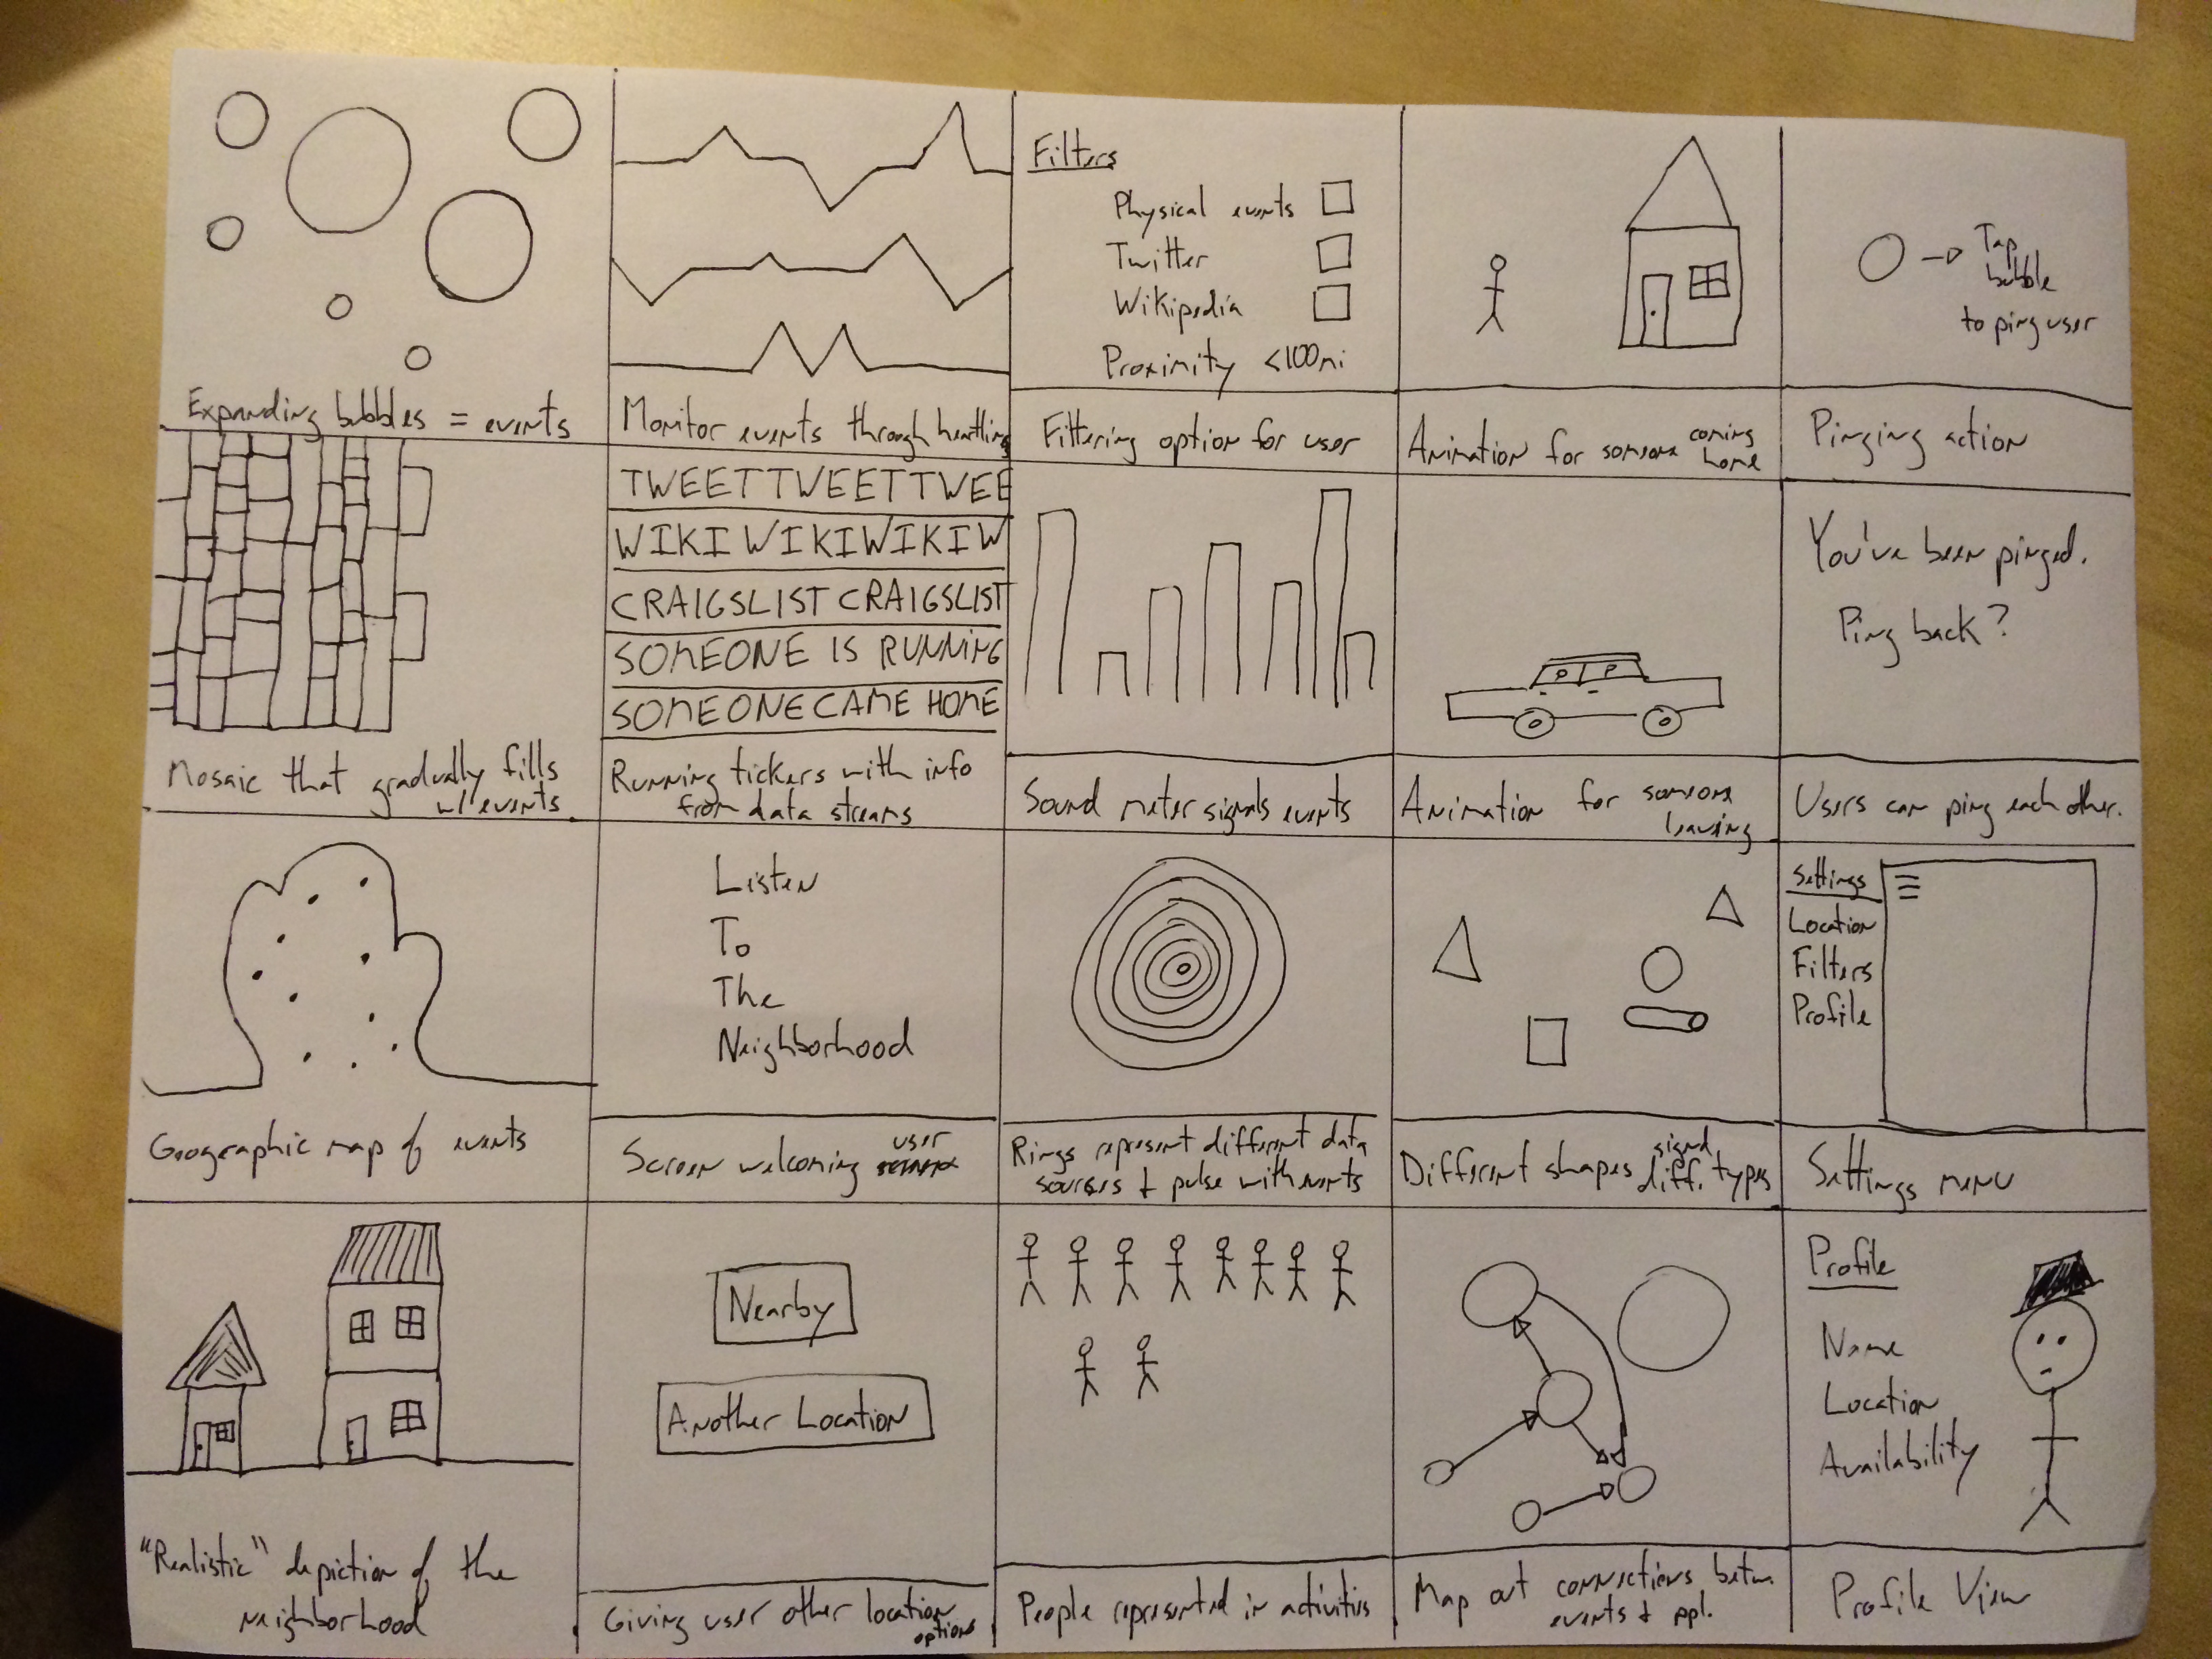 Expanding bubbles = events
Monitor events through heartlines
Filters
Physical events
Twitter
Wikipedia
Proximity <100mi
Filtering option for user
Animation for someone coming
home
Tap
bubble
to ping user
Pinging action
Mosaic that gradually fills
w/ events
TWEETTWEETTWEE
WIKI WIKIWIKIW
CRAIGSLIST CRAIGSLIST
SOMEONE IS RUNNING
SOMEONE CAME HOME
Running tickers with info
from data streams
Sound meter signals events
Animation for someone
leaving
You've been pinged.
Ping back?
Users can ping each other.
Geographic map of events
Listen
To
The
Neighborhood
Screen welcoming user
Rings represent different data
sources + pulse with events
Different shapes signal
diff. types
Settings
Location
Filters
Profile
Settings menu
"Realistic" depiction of the
neighborhood
Nearby
Another Location
Giving user other location
options
People represented in activities
Map out connections betw.
events + ppl.
Profile
Name
Location
Availability
Profile View